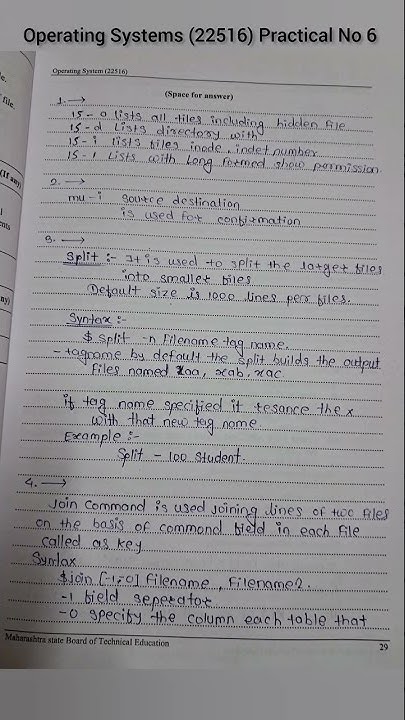 Operating Systems (22516) Practical No 6
Operating System (22516)
(Space for answer)
1. →
ls - a lists all files including hidden file
ls - d Lists directory with
ls - i lists files inode, index number
ls - l Lists with Long formed show permission
2. →
mv - i source destination
is used for confirmation
3. →
Split :- It is used to split the larger files
into smaller files
Default size is 1000 lines per files.
Syntax :-
$ split -n Filename tag name.
- tagname by default the split builds the output
files named xaa, xab, xac
if tag name specified it the x
with that new tag name.
Example :-
Split - 100 student.
4. →
Join Command is used joining lines of two files
on the basis of command field in each file
called as key
Syntax
$join [-1,-0] Filename, Filename2.
-1 field seperator
-0 specify the column each table that
Maharashtra state Board of Technical Education
29
file.
(If any)